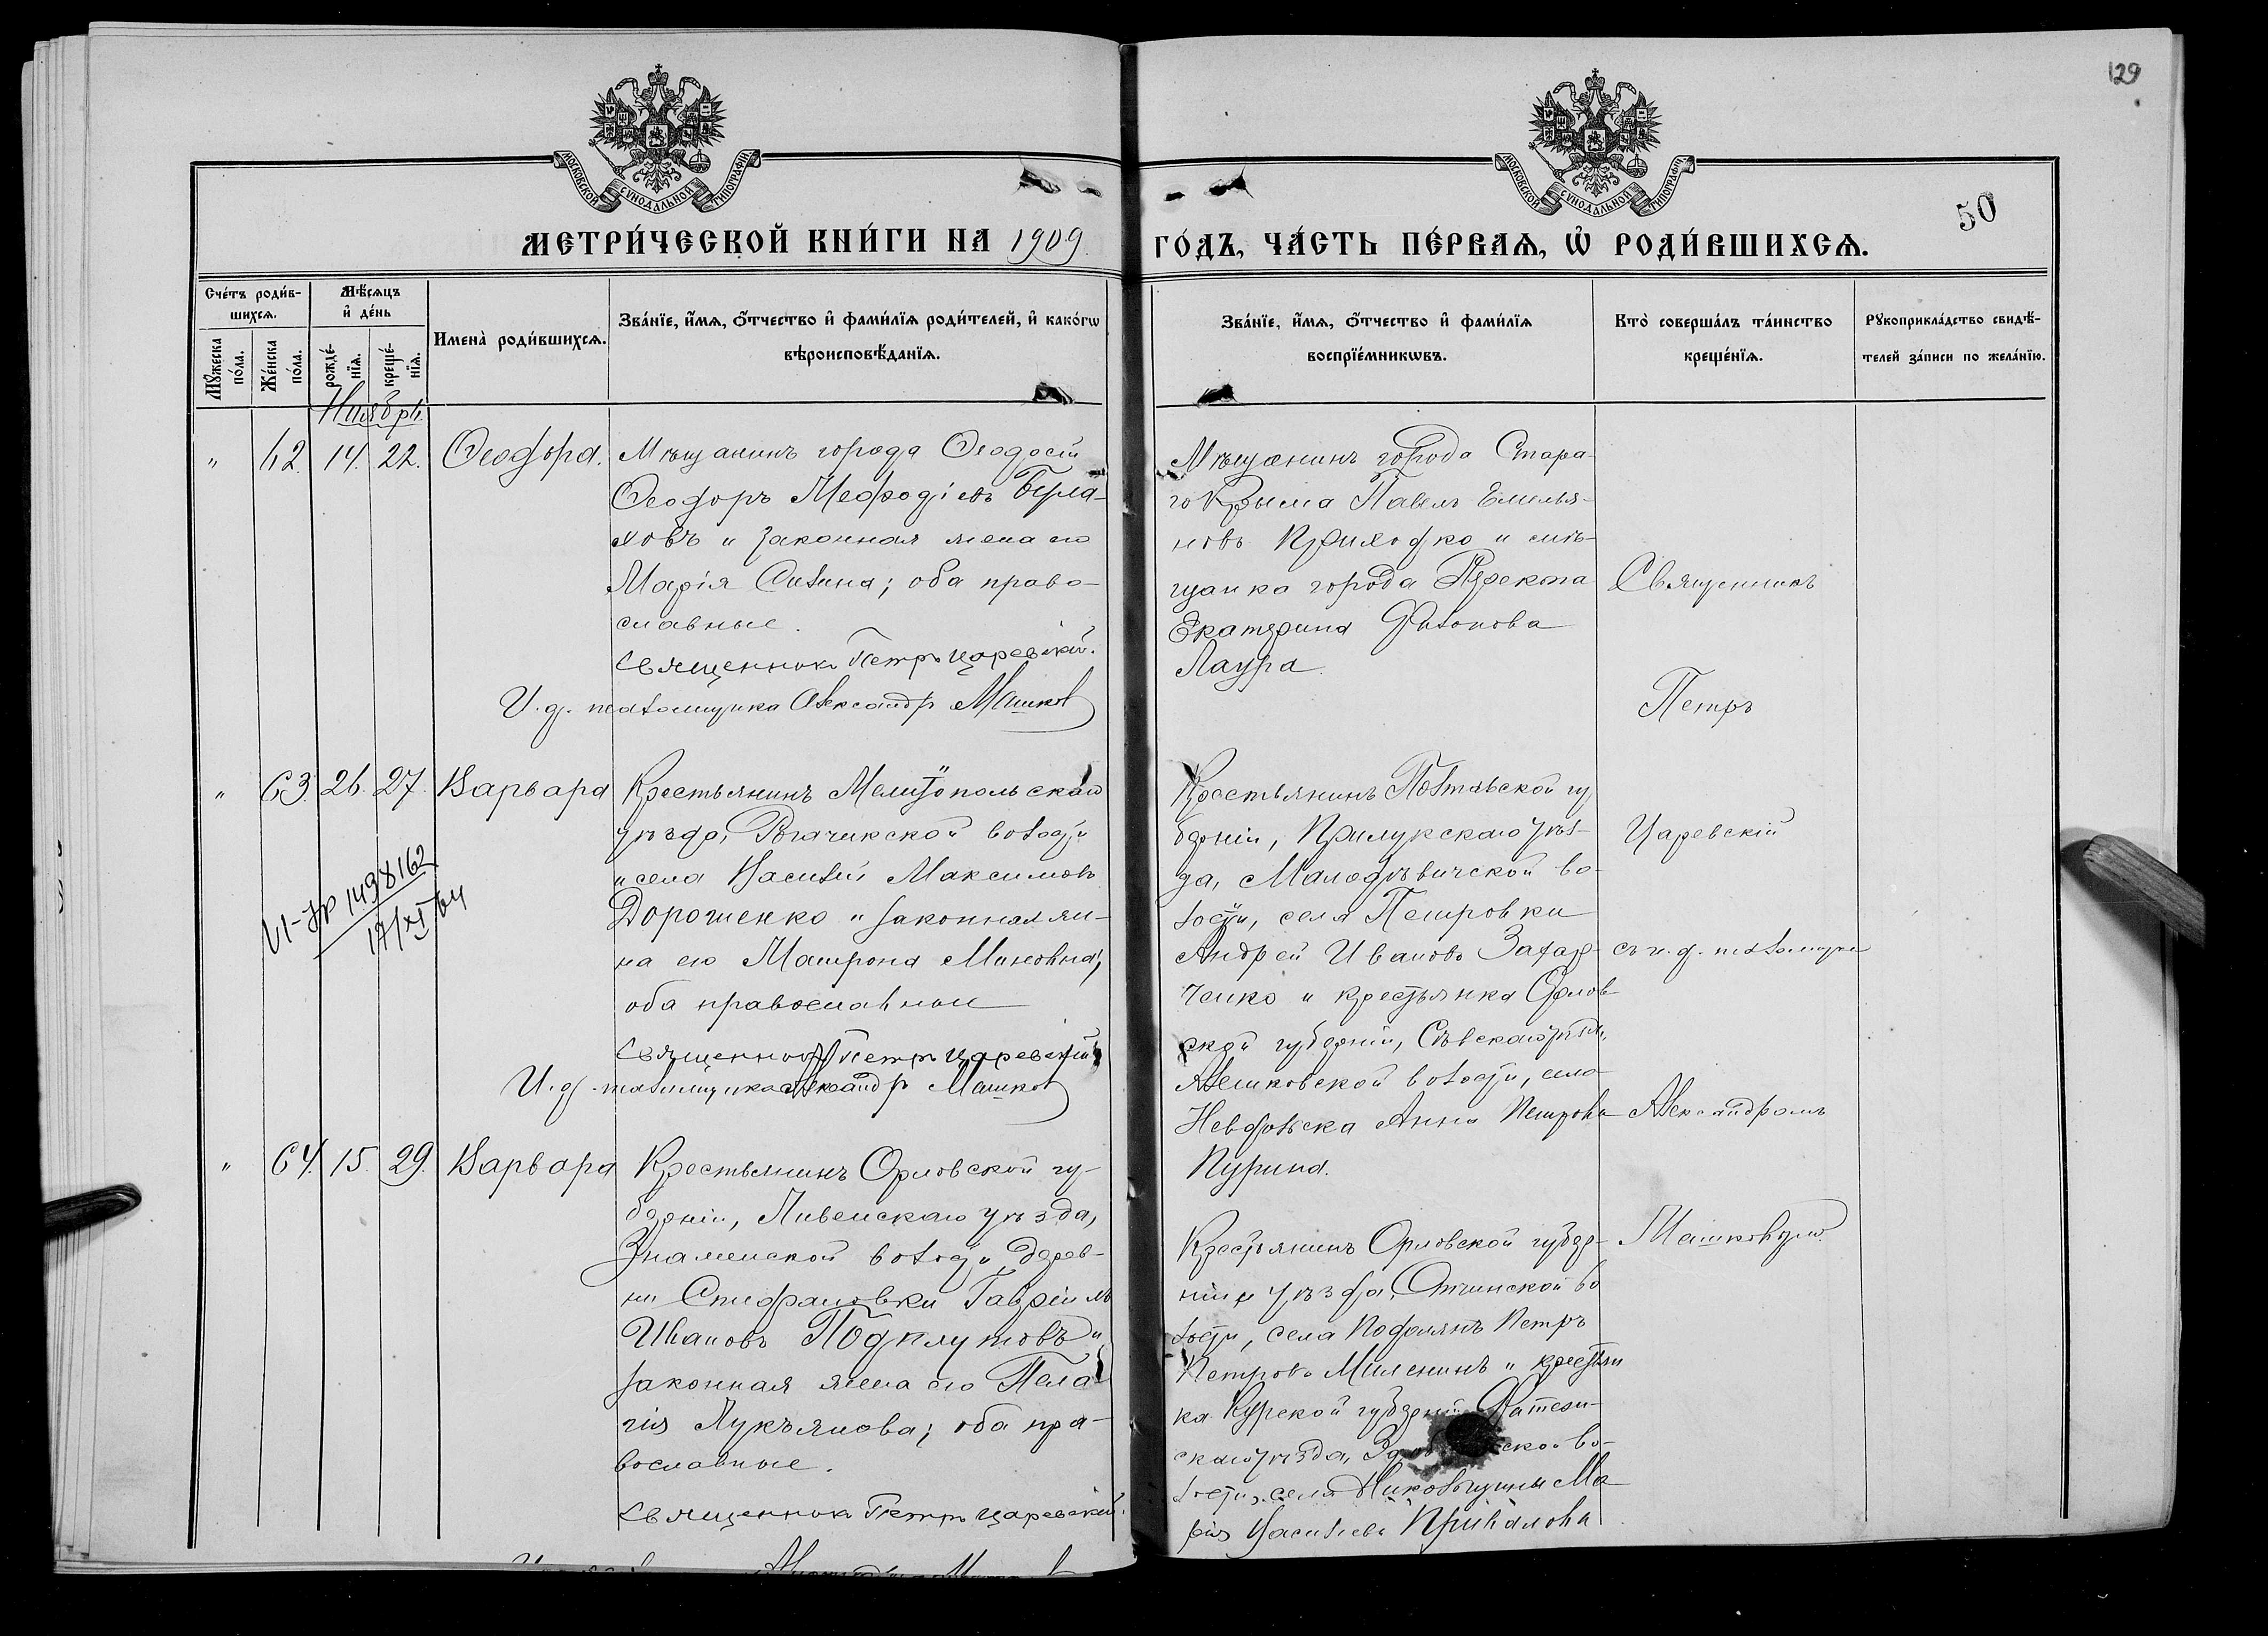 129
50
МОСКОВСКОЙ СѴНОДАЛЬНОЙ ТИПОГРАФІИ
МОСКОВСКОЙ СѴНОДАЛЬНОЙ ТИПОГРАФІИ
МЕТРИ́ЧЕСКОЙ КНИ́ГИ НА 1909
ГО́ДЪ, ЧА́СТЬ ПЕ́РВАѦ, Ѡ҆ РОДИ́ВШИХСѦ.
Сче́тъ роди́в-
шихсѧ.
Мꙋ́жеска по́ла.
Же́нска по́ла.
Мѣ́сѧцъ
и҆ де́нь
рожде́-
нїѧ.
креще́-
нїѧ.
Имена̀ роди́вшихсѧ.
Зва́нїе, и҆́мѧ, ѻ҆́тчество и҆ фами́лїѧ роди́телей, и҆ како́гѡ
вѣроисповѣ́данїѧ.
Зва́нїе, и҆́мѧ, ѻ҆́тчество и҆ фами́лїѧ
воспрїе́мникѡвъ.
Кто̀ соверша́лъ та́инство
креще́нїѧ.
Рꙋкоприкла́дство свидѣ́-
телей за́писи по жела́нїю.
Ноябрь
" 62. 14. 22. Ѳеофора.
Мѣщанинъ города Ѳеодосіи
Ѳеодоръ Меѳодіевъ Була-
ховъ и законная жена его
Марія Ильина; оба право-
славные.
Священникъ Петръ Царевскій.
И. д. псаломщика Александръ Машков
Мѣщанинъ города Стара-
го Крыма Павелъ Емелья-
новъ Приходко и мѣ-
щанка города
Екатерина Филонова
Лаура.
Священникъ
Петръ
Царевскій
съ и. д. псаломщика
Александромъ
Машковымъ.
" 63. 26. 27. Варвара
Крестьянинъ Мелитопольскаго
уѣзда, Рогачикской волости
и села Василій Максимовъ
Дорошенко и законная же-
на его Матрона Миновна;
оба православные
Священникъ Петръ Царевскій
И. д. псаломщика Александръ Машков
VI-ЯР 1498162
17/XI 64
Крестьянинъ Полтавской гу-
берніи, Прилукскаго уѣз-
да, Малодѣвичской во-
лости, села Петровки
Андрей Ивановъ Захар-
ченко и крестьянка Орлов-
ской губерніи, Сѣвскаго уѣзда,
Алешковской волости, села
Невдольска Анна Петрова
Пурина.
" 64. 15. 29. Варвара
Крестьянинъ Орловской гу-
берніи, Ливенскаго уѣзда,
Знаменской волости, дерев-
ни Гавріилъ
Ивановъ Подплутовъ и
законная жена его Пела-
гія Лукьянова; оба пра-
вославные.
Священникъ Петръ Царевскій.
Крестьянинъ Орловской губер-
ніи и уѣзда, во-
лости, села Подолянъ Петръ
Петровъ Миленинъ и крестьян-
ка Курской губерніи
скаго уѣзда, ской во-
лости, села Ма-
рія Васильева Привалова